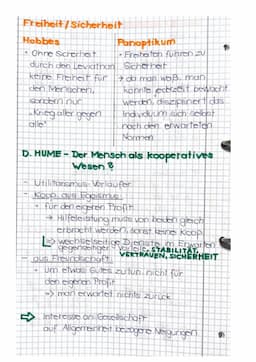 Freiheit/Sicherheit
Hobbes
• Ohne Sicherheit
durch den Leviathan
keine Freiheit für
den Menschen,
sondern nur
"Krieg aller gegen
alle"
Panoptikum
• Freiheiten führen zu
Sicherheit
→ da man weiß, man
könnte jederzeit bewacht
werden, diszipliniert das
Individuum sich selbst
nach den erwarteten
Normen
D. HUME - Der Mensch als kooperatives
Wesen?
- Utilitarismus-Vorläufer
- Koop. aus Egoismus:
• für den eigenen Profit
→ Hilfeleistung muss von beiden gleich
erbracht werden, sonst keine Koop.
↳ wechselseitige Dienste im Erwarten
gegenseitiger Vorteile, STABILITÄT,
VERTRAUEN, SICHERHEIT
- aus Freundschaft:
• um etwas Gutes zu tun, nicht für
den eigenen Profit
→ man erwartet nichts zurück
⇒ Interesse an Gesellschaft
auf Allgemeinheit bezogene Neigungen